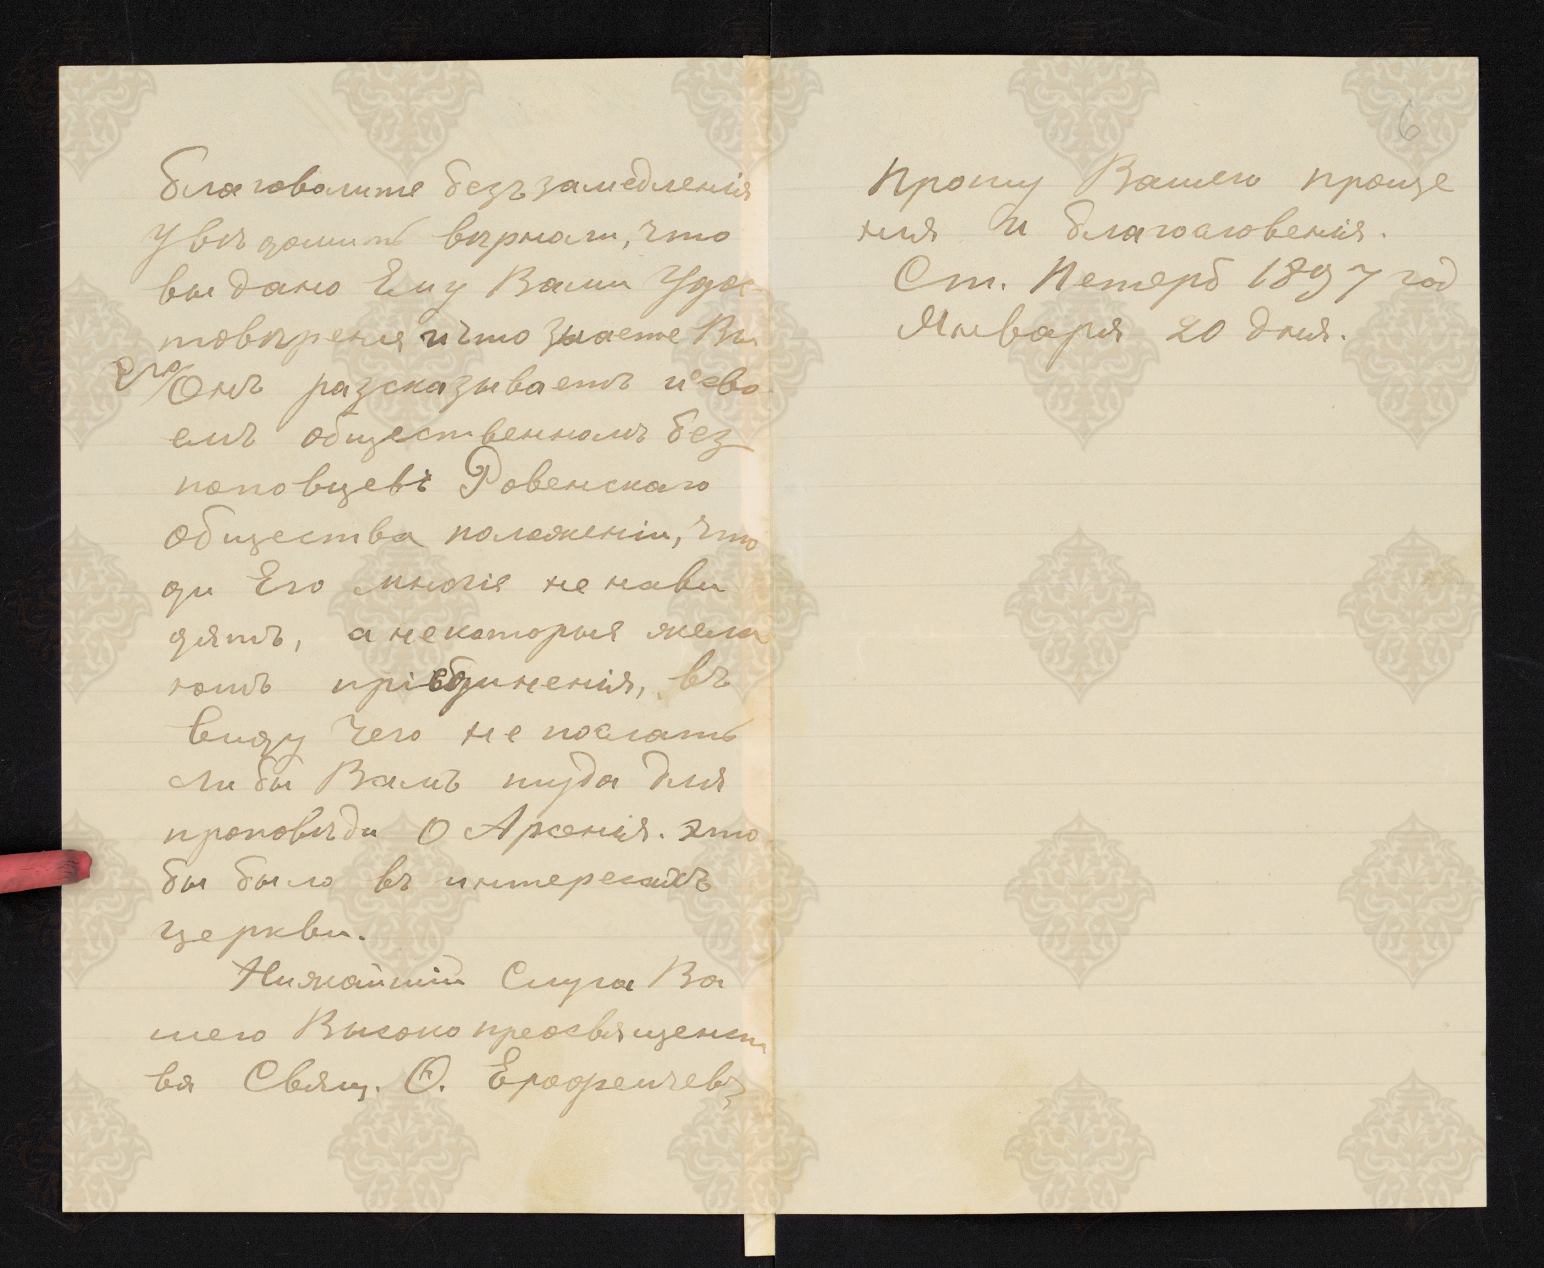 благоволите безъ замедленія
увѣдомить вѣрно ли, что
выдано Ему Вами Удос-
товѣреніе и что знаете Вы
Его/ Онъ разсказываетъ и о сво-
емъ общественномъ без
поповцевъ Ровенскаго
общества положеніи, что
ди Его многіе не нави
дятъ, а некоторыя жела
ютъ пріединенія, въ
виду чего не послать
ли бы Вамъ туда для
проповѣди О Арсенія. это
бы было въ интересахъ
церкви.
Нижайшій Слуга Ва
шего Высокопреосвященст
ва Свящ. Ѳ. Ерофеичевъ
6
Прошу Вашего проще
ния и благословенія.
Ст. Петерб 1897 год
Января 20 дня.